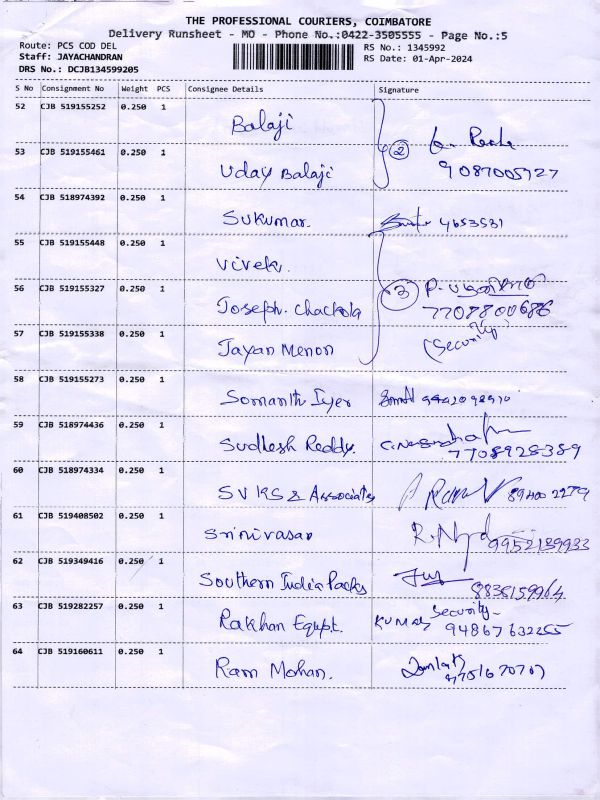 THE PROFESSIONAL COURIERS, COIMBATORE
Delivery Runsheet - MO - Phone No.:0422-3505555 - Page No.:5
Route: PCS COD DEL
Staff: JAYACHANDRAN
DRS No.: DCJB134599205
RS No.: 1345992
RS Date: 01-Apr-2024
S No Consignment No Weight PCS Consignee Details Signature
52 CJB 519155252 0.250 1 Balaji
② 9087005727
53 CJB 519155461 0.250 1 Uday Balaji
54 CJB 518974392 0.250 1 Sukumar. 4653531
55 CJB 519155448 0.250 1 Vivek.
56 CJB 519155327 0.250 1 Joseph. Chackola
③ P. 7708800686
(Security)
57 CJB 519155338 0.250 1 Jayan Menon
58 CJB 519155273 0.250 1 Somanth Iyer
59 CJB 518974436 0.250 1 Sudhesh Reddy. 7708928389
60 CJB 518974334 0.250 1 SVKS & Associates
61 CJB 519408502 0.250 1 Srinivasan 9952139933
62 CJB 519349416 0.250 1 Southern India Packs
63 CJB 519282257 0.250 1 Rakhan Eqypt. KUMAR Security-
64 CJB 519160611 0.250 1 Ram Mohan.